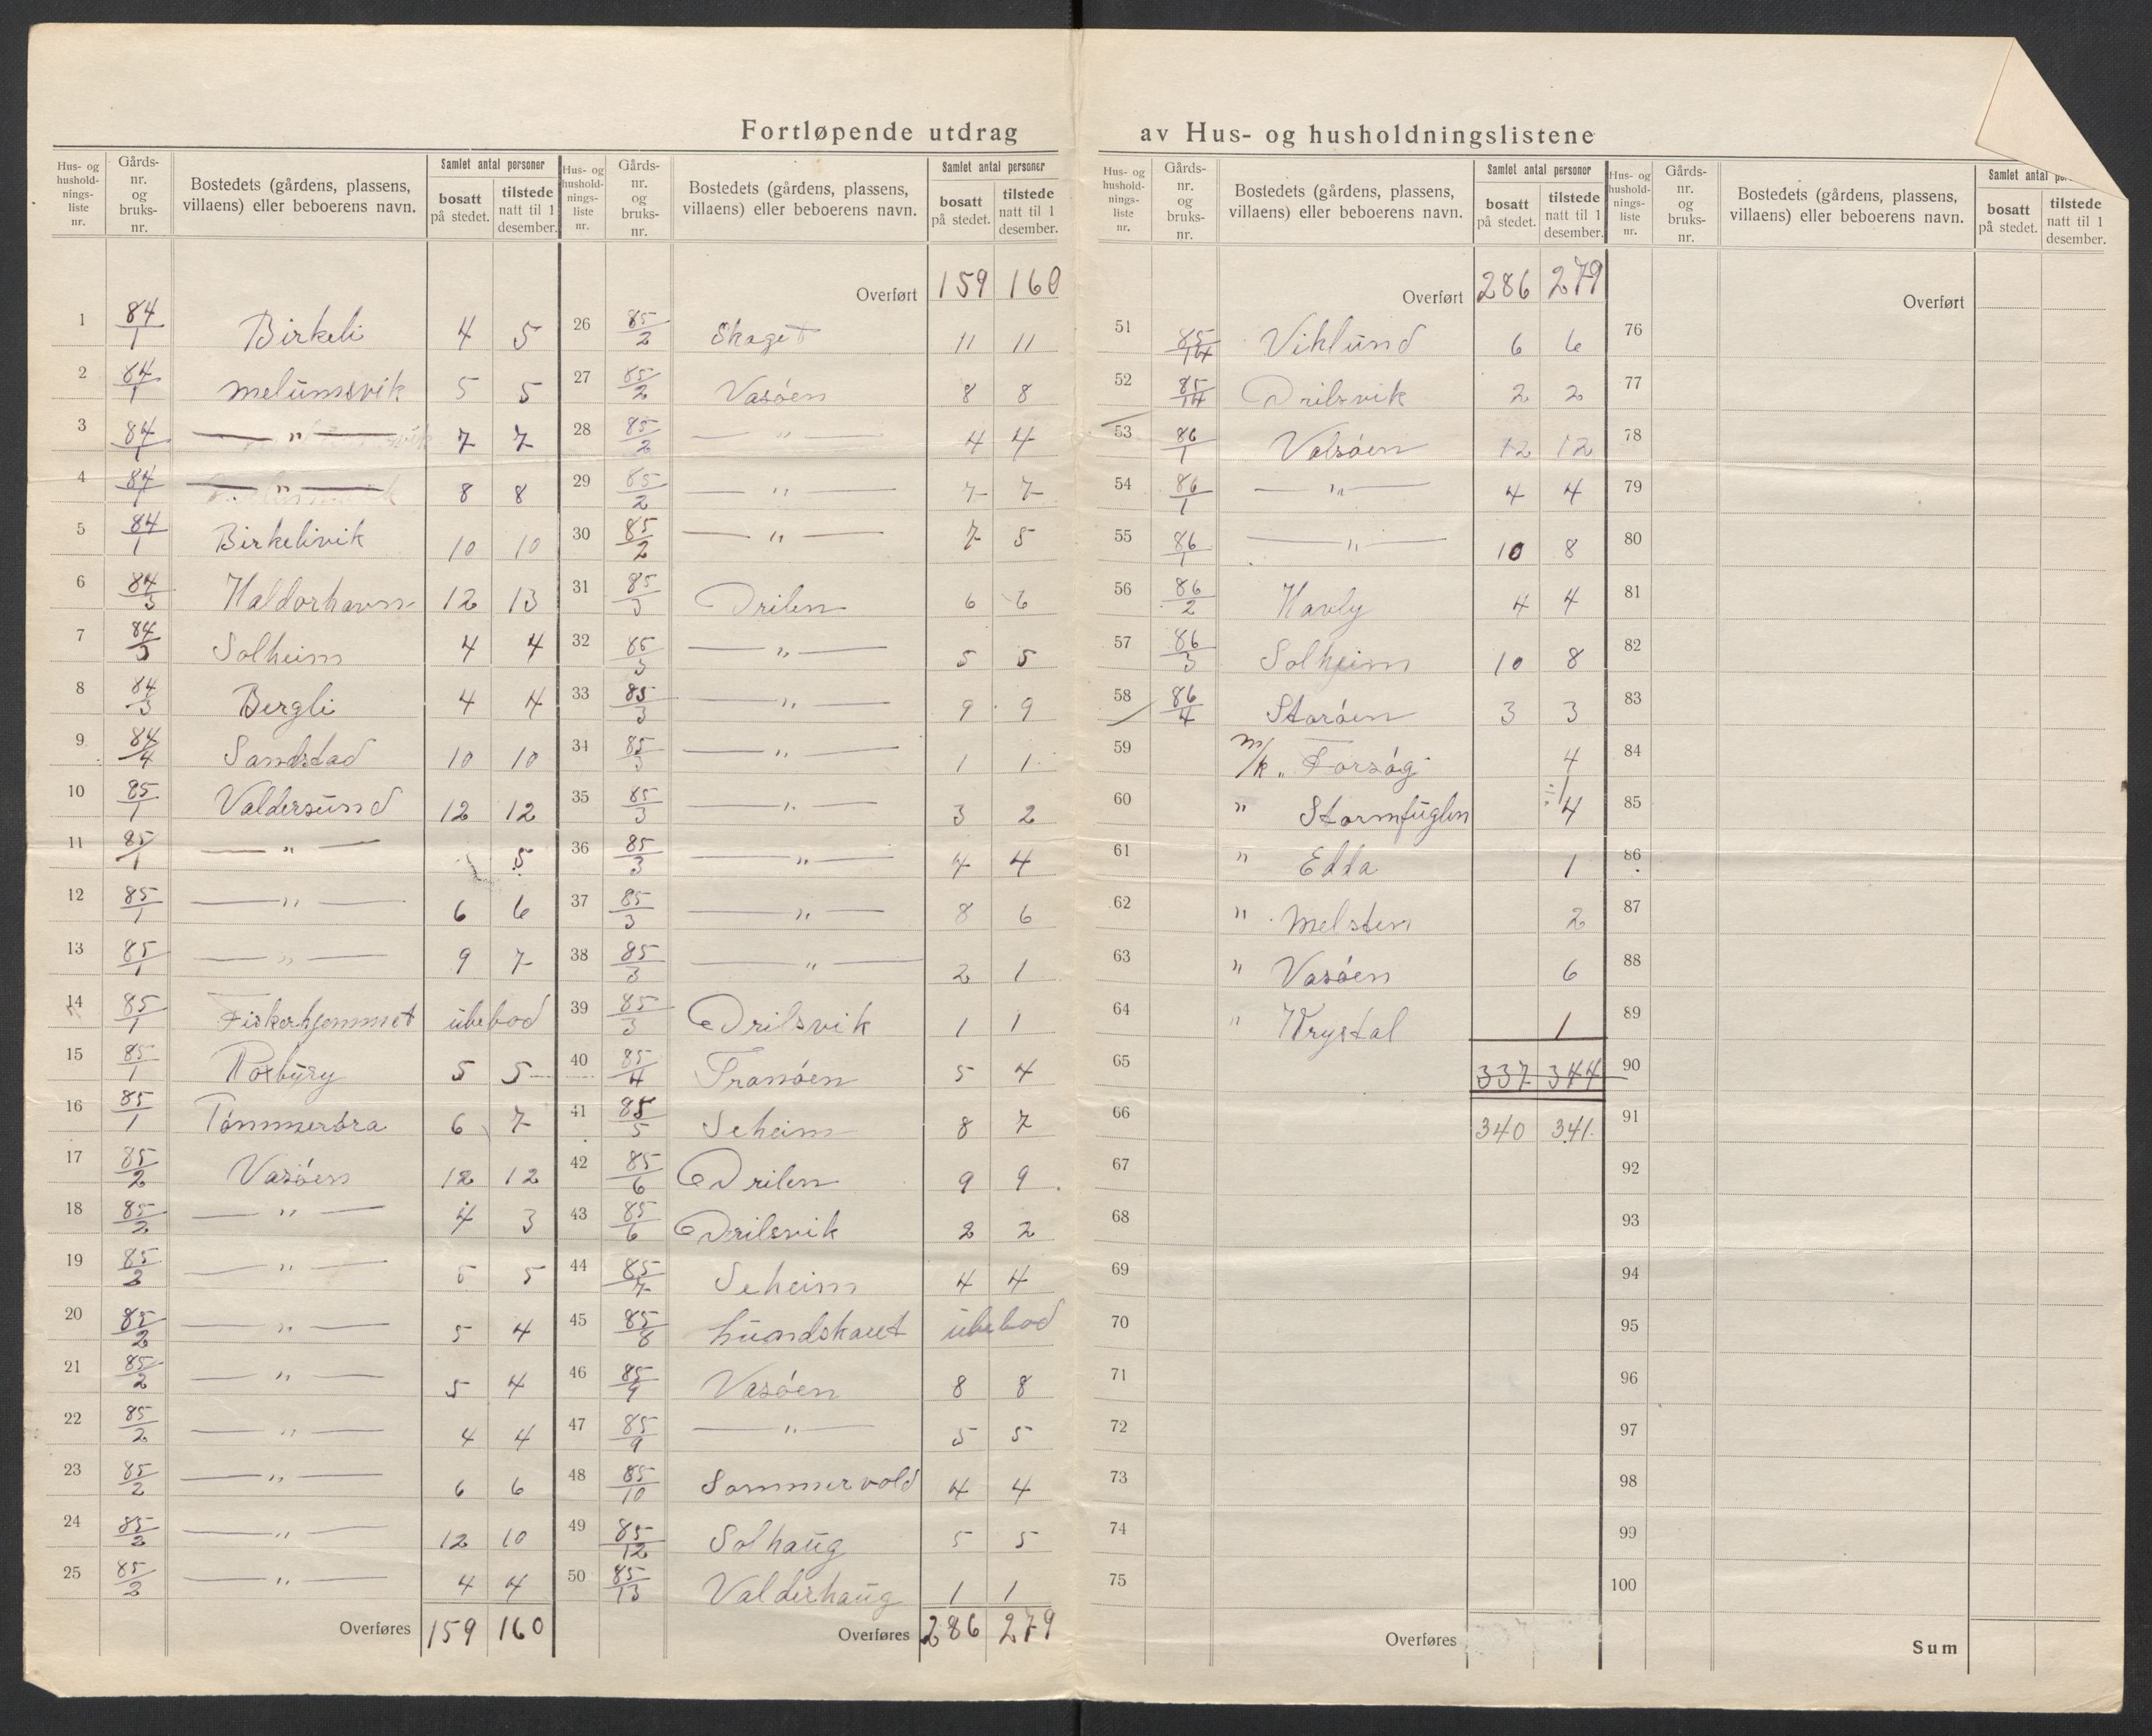 Fortløpende utdrag av Hus- og husholdningslistene
Hus- og hushold- nings- liste nr. | Gårds- nr. og bruks- nr. | Bostedets (gårdens, plassens, villaens) eller beboerens navn. | Samlet antal personer | bosatt på stedet. | tilstede natt til 1 desember.
1 84/1 Birkeli 4 5
2 84/1 Melümsvik 5 5
3 84/1 — " — 7 7
4 84/1 — " — 8 8
5 84/1 Birkelivik 10 10
6 84/3 Haldorhavn 12 13
7 84/3 Solheim 4 4
8 84/3 Bergli 4 4
9 84/4 Sandstad 10 10
10 85/1 Valdersünd 12 12
11 85/1 — " — 5
12 85/1 — " — 6 6
13 85/1 — " — 9 7
14 85/1 Fiskerhjemmet übebod
15 85/1 Roxbüry 5 5
16 85/1 Tømmerøra 6 7
17 85/2 Vasøen 12 12
18 85/2 — " — 4 3
19 85/2 — " — 5 5
20 85/2 — " — 5 4
21 85/2 — " — 5 4
22 85/2 — " — 4 4
23 85/2 — " — 6 6
24 85/2 — " — 12 10
25 85/2 — " — 4 4
Overføres 159 160
Hus- og hushold- nings- liste nr. | Gårds- nr. og bruks- nr. | Bostedets (gårdens, plassens, villaens) eller beboerens navn. | Samlet antal personer | bosatt på stedet. | tilstede natt til 1 desember.
Overført 159 160
26 85/2 Skaget 11 11
27 85/2 Vasøen 8 8
28 85/2 — " — 4 4
29 85/2 — " — 7 7
30 85/2 — " — 7 5
31 85/3 Drilen 6 6
32 85/3 — " — 5 5
33 85/3 — " — 9 9
34 85/3 — " — 1 1
35 85/3 — " — 3 2
36 85/3 — " — 4 4
37 85/3 — " — 8 6
38 85/3 — " — 2 1
39 85/3 Drilsvik 1 1
40 85/4 Franøen 5 4
41 85/5 Seheim 8 7
42 85/6 Drilen 9 9
43 85/6 Drilsvik 2 2
44 85/7 Seheim 4 4
45 85/8 übebod
46 85/9 Vasøen 8 8
47 85/9 — " — 5 5
48 85/10 Sommervold 4 4
49 85/12 Solhaüg 5 5
50 85/13 Valderhaüg 1 1
Overføres 286 279
Hus- og hushold- nings- liste nr. | Gårds- nr. og bruks- nr. | Bostedets (gårdens, plassens, villaens) eller beboerens navn. | Samlet antal personer | bosatt på stedet. | tilstede natt til 1 desember.
Overført 286 279
51 85/14 Viklünd 6 6
52 85/14 Drilsvik 2 2
53 86/1 Valsøen 12 12
54 86/1 — " — 4 4
55 86/1 — " — 10 8
56 86/2 Havly 4 4
57 86/3 Solheim 10 8
58 86/4 Storøen 3 3
59 m/k „ Forsøg 4
60 " Stormfüglen 4
61 " Edda 1
62 " Melsten 2
63 " Vasøen 6
64 " Krystal 1
65 337 344
66 340 341
67
68
69
70
71
72
73
74
75
Overføres
Hus- og hushold- nings- liste nr. | Gårds- nr. og bruks- nr. | Bostedets (gårdens, plassens, villaens) eller beboerens navn. | Samlet antal | bosatt på stedet. | tilstede natt til 1 desember.
Overført
76
77
78
79
80
81
82
83
84
85
86
87
88
89
90
91
92
93
94
95
96
97
98
99
100
Sum